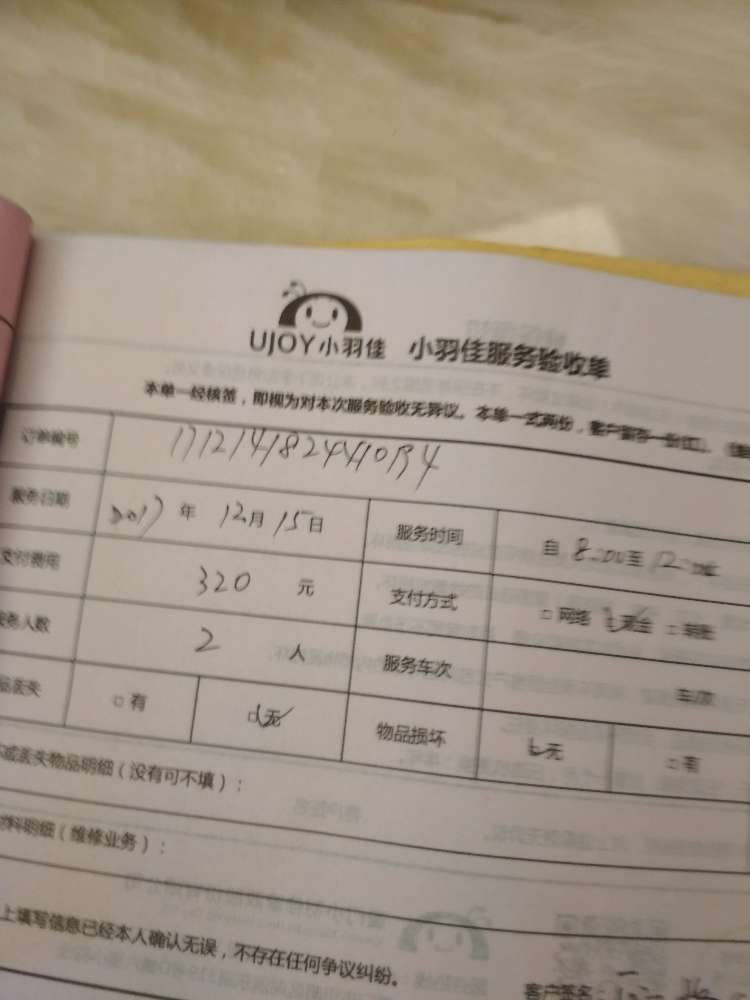 UJOY小羽佳 小羽佳服务验收单
本单一经核签，即视为对本次服务验收无异议。本单一式两份，客户留存一份
订单编号
服务日期 2017年 12月 15日 服务时间 自 8:00至 12:00
支付费用 320 元 支付方式 □网络 现金 □转账
服务人数 2 人 服务车次 车/次
品丢失 □有 无 物品损坏 无 □有
坏或丢失物品明细（没有可不填）：
材料明细（维修业务）：
上填写信息已经本人确认无误，不存在任何争议纠纷。
客户签名：